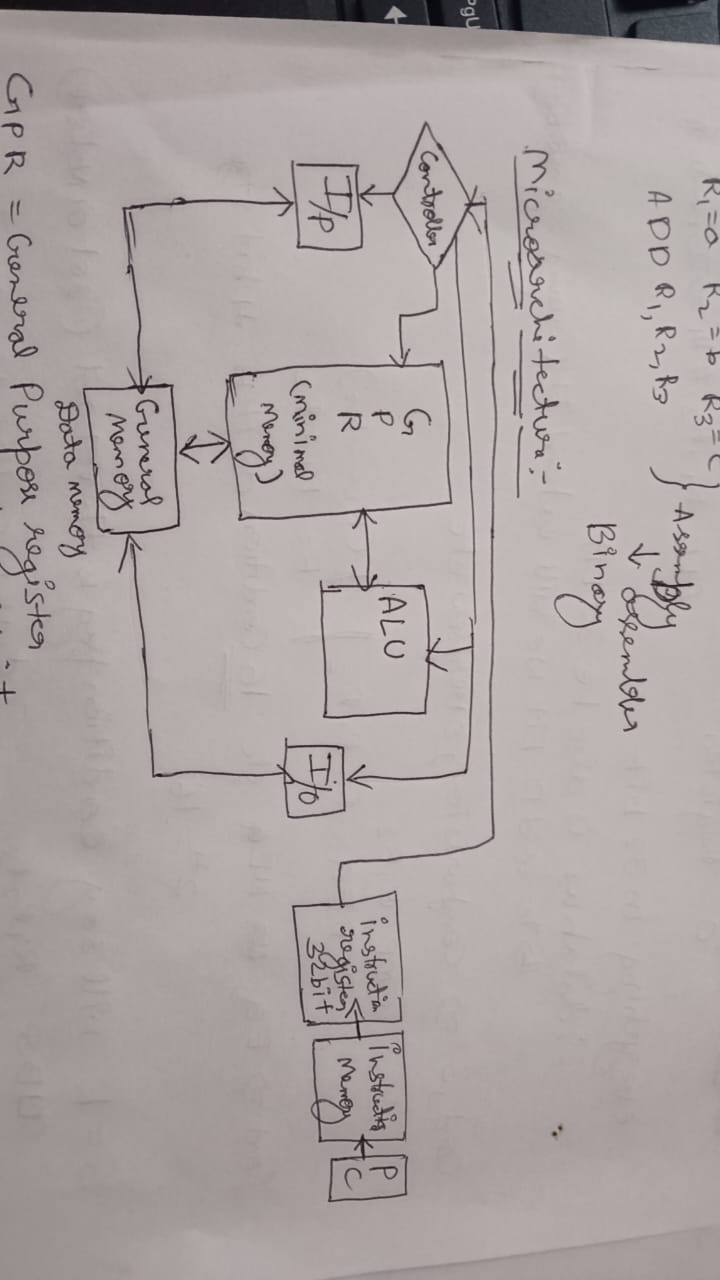 R1=a R2=b R3=c
ADD R1, R2, R3 } Assembly
↓ assembler
Binary
Microarchitecture:-
Controller
I/p
G
P
R
(minimal
memory)
ALU
I/o
General
Memory
Data memory
instruction
register
32bit
instruction
Memory
P
C
GPR = General Purpose register
PgU